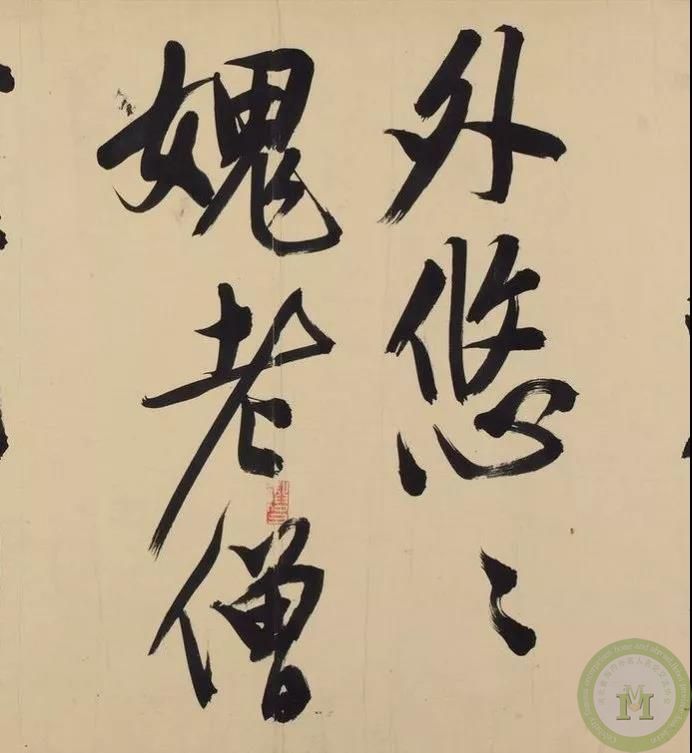 外悠々
媿老僧